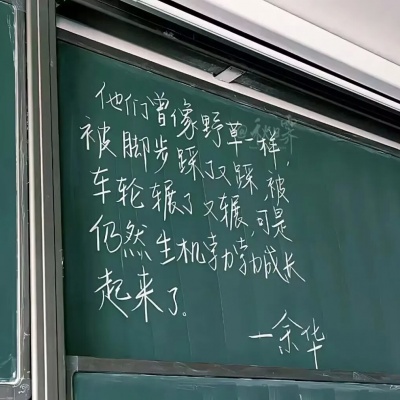 他们曾像野草一样,
被脚步踩了又踩,被
车轮辗了又辗,可是
仍然生机勃勃成长
起来了。
一余华